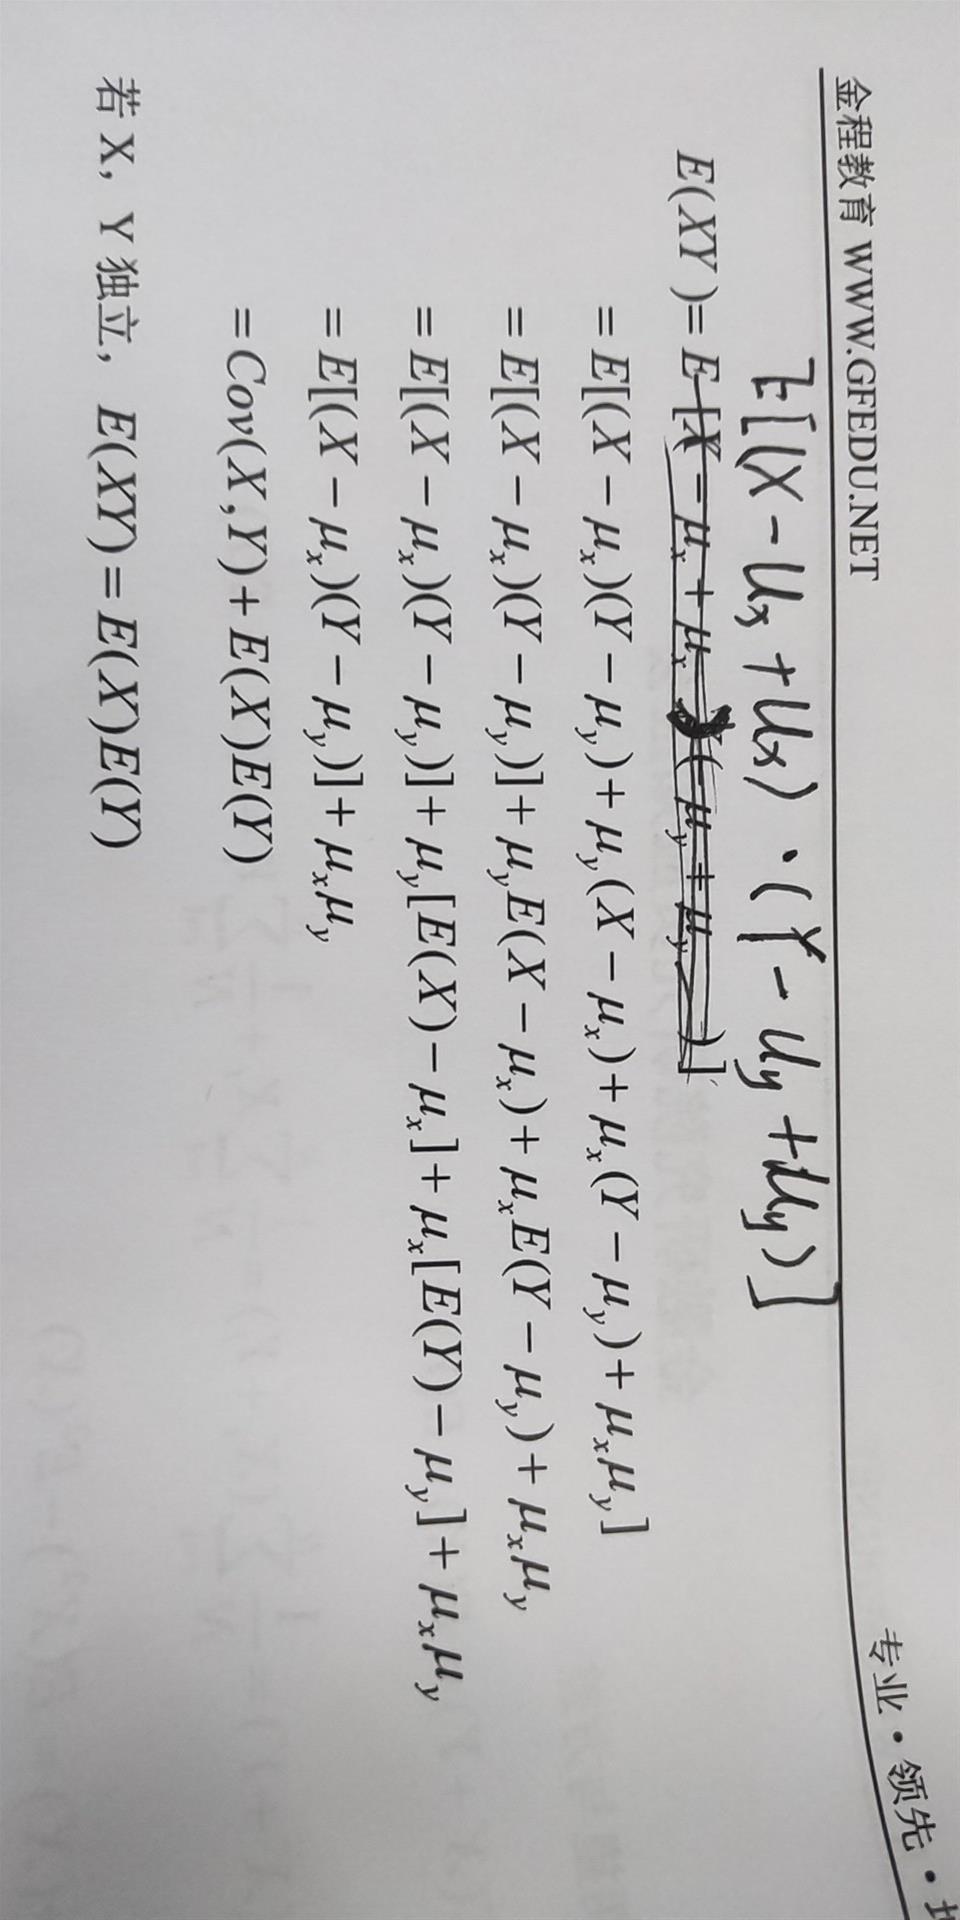 金程教育 WWW.GFEDU.NET 专业·领先·
E[(X-μx+μx)·(Y-μy+μy)]
E(XY)=E[X-μx+μx)(-μy+μy)]
=E[(X-μx)(Y-μy)+μy(X-μx)+μx(Y-μy)+μxμy]
=E[(X-μx)(Y-μy)]+μyE(X-μx)+μxE(Y-μy)+μxμy
=E[(X-μx)(Y-μy)]+μy[E(X)-μx]+μx[E(Y)-μy]+μxμy
=E[(X-μx)(Y-μy)]+μxμy
=Cov(X,Y)+E(X)E(Y)
若 X，Y 独立，E(XY)=E(X)E(Y)